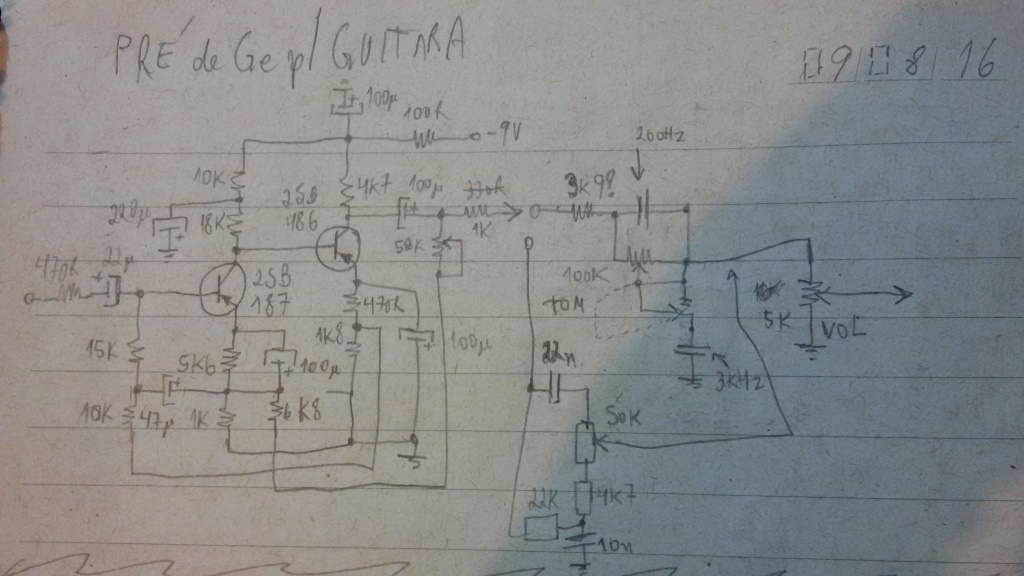 PRÉ de Ge p/ GUITARA
09 08 16
100µ
100R
-9V
200Hz
10K
2SB
186
4K7
100µ
3K9?
220µ
18K
1K
50K
470R
2SB
187
100K
470R
TOM
5K
VOL
15K
5K6
100µ
1K8
100µ
22n
3KHz
10K
47µ
1K
6K8
50K
22K
4K7
10n